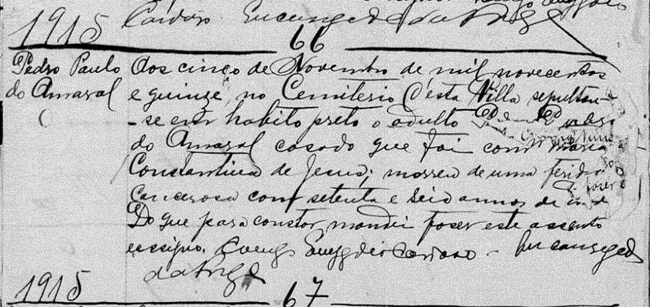 1915 Cardoso Encarregado
da Frega
66
Pedro Paulo
do Amaral
Aos cinco de Novembro de mil novecentos
e quinze, no Cemiterio d'esta Villa sepultou-
-se em habito preto o adulto Pedro Paulo
do Amaral casado que foi com Maria
Constantina de Jesus; morreu de uma ferida
cancerosa com setenta e seis annos de idade
Do que para constar mandei faser este assento
e assigno. Conego Cardoso - Encarregado
da Frega
1915
67